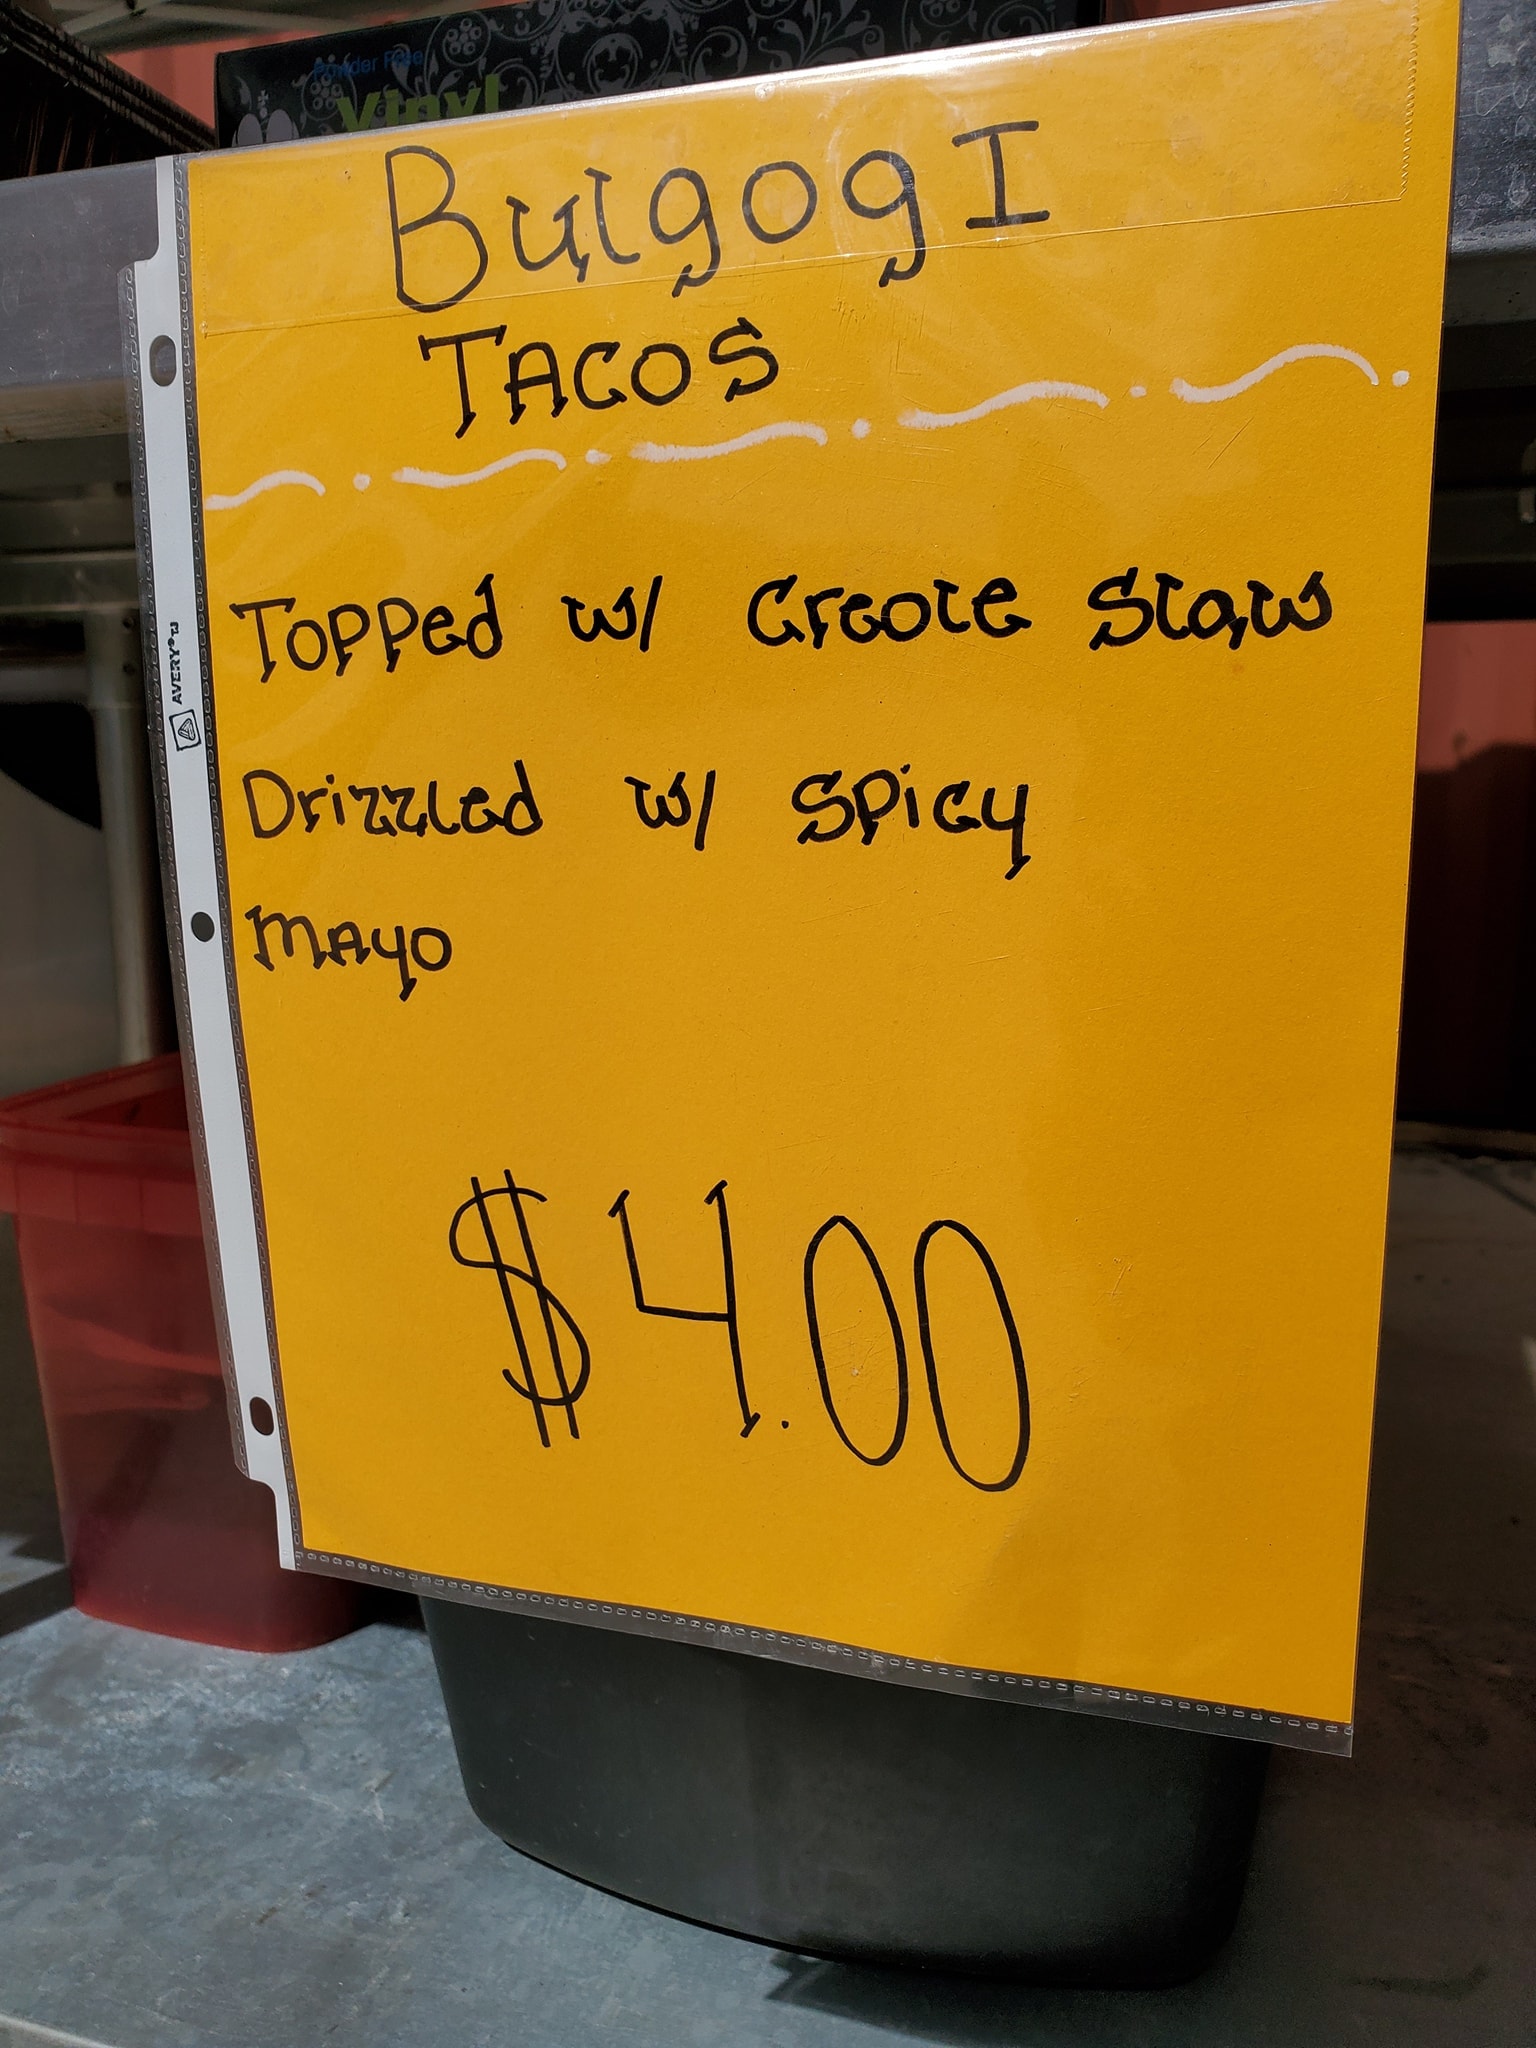 Powder Free
Vinyl
BulgogI
TACOS
Topped w/ Creole Slaw
Drizzled w/ Spicy
MAYO
$4.00
AVERY